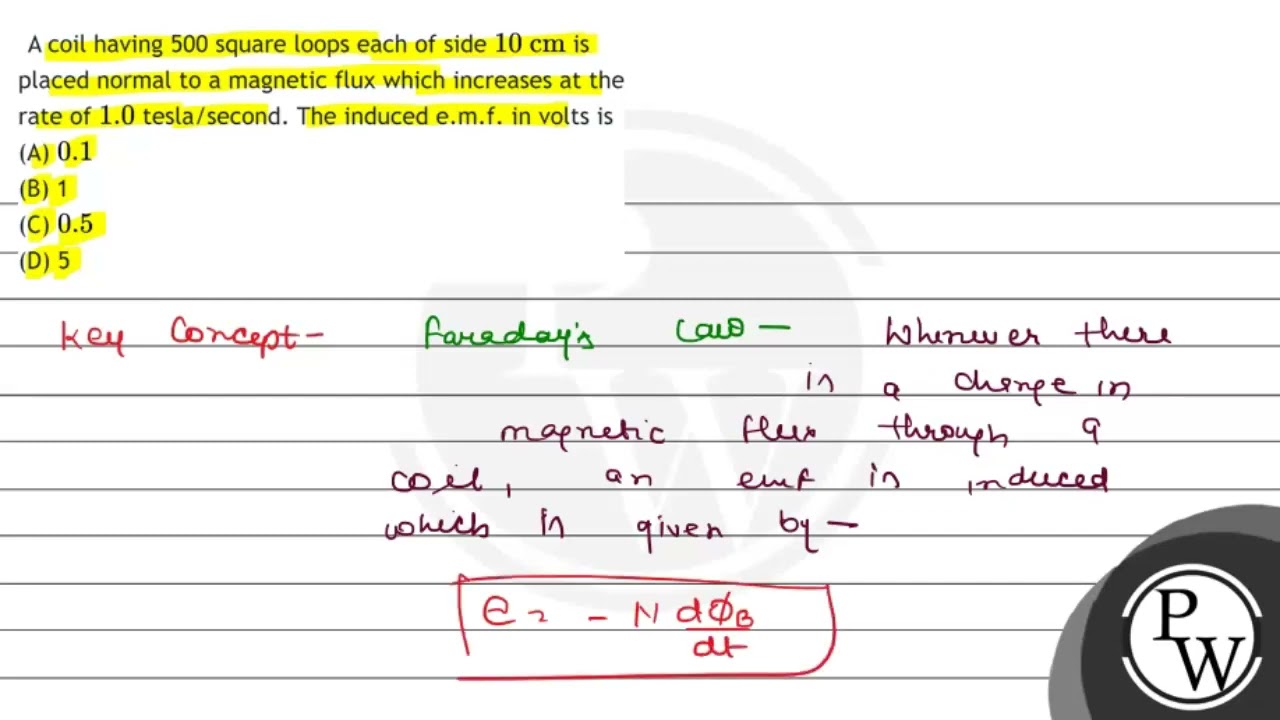 A coil having 500 square loops each of side 10 cm is
placed normal to a magnetic flux which increases at the
rate of 1.0 tesla/second. The induced e.m.f. in volts is
(A) 0.1
(B) 1
(C) 0.5
(D) 5
Key Concept - Faraday's Law - Whenever there
is a change in
magnetic flux through a
coil, an emf is induced
which is given by -
e = - N dΦB/dt
PW